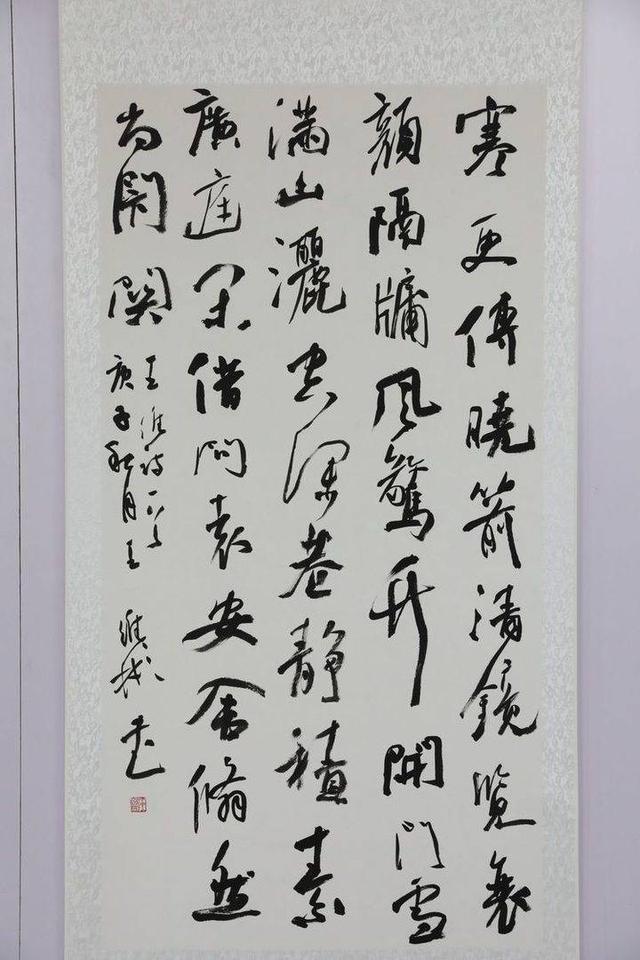 寒更傳曉箭清鏡覽衰
顏隔牖風驚竹開門雪
滿山灑空深巷靜積素
廣庭閑借問袁安舍翛然
尚閉關
王維詩一首
庚子秋月王 書